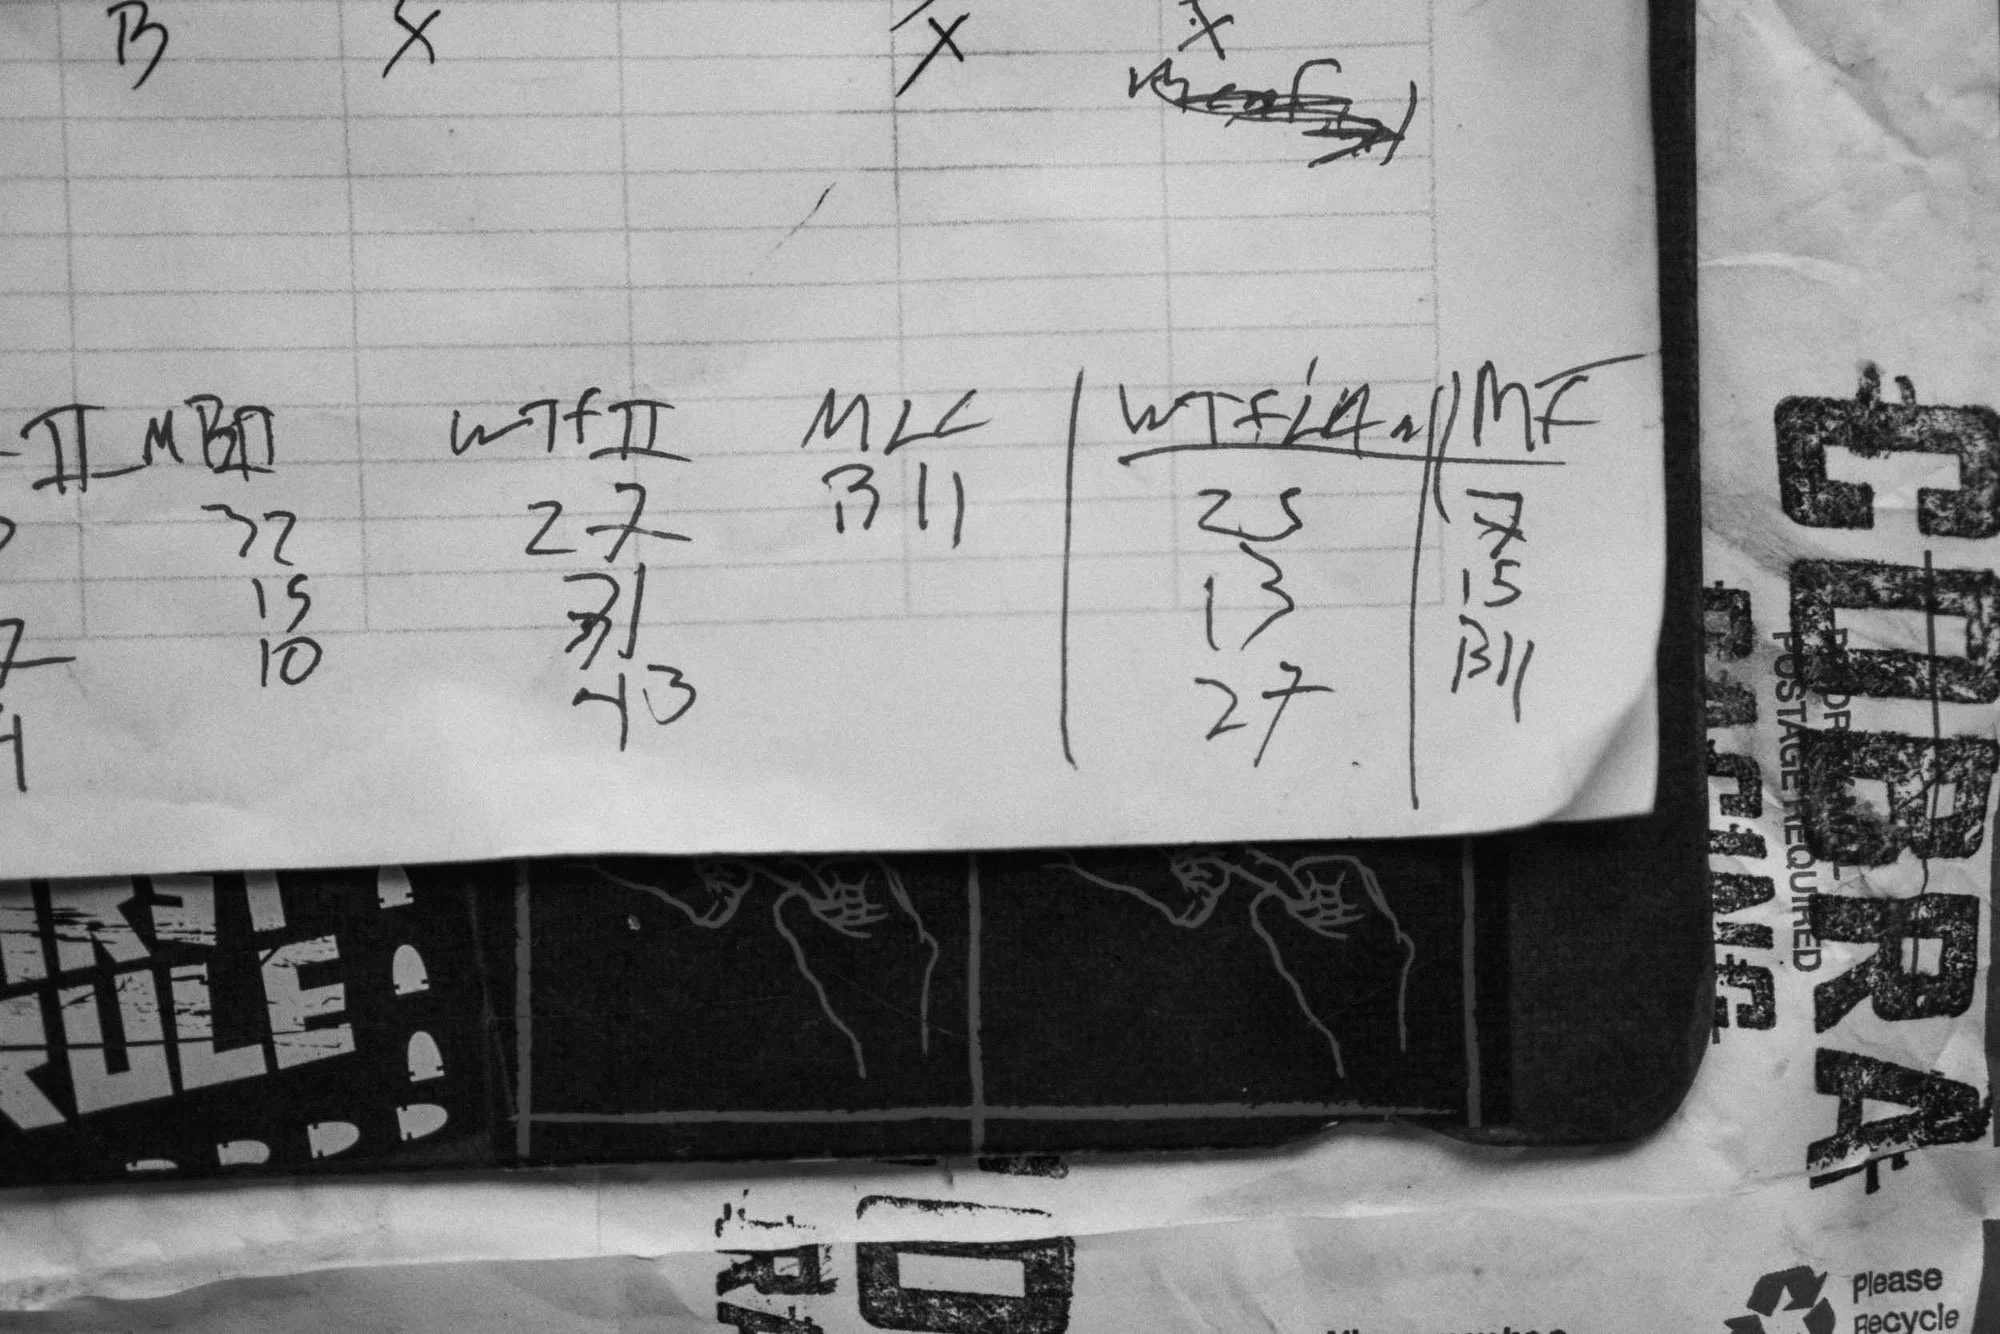 B X X X
II MBII WTFII MLC WTF LAN MF
32 27 B11 25 7
15 31 13 15
7 10 43 27 B11
4
RULE
CUBRA
RACING
POSTAGE REQUIRED
RA
Please
Recycle